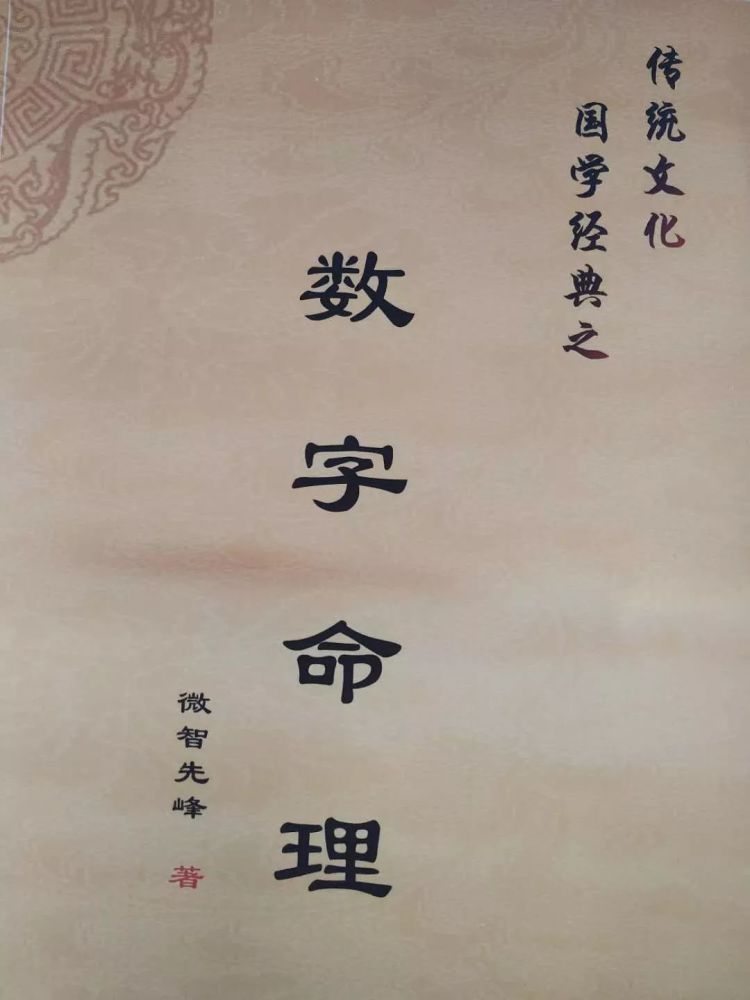 传统文化
国学经典之
数字命理
微智先峰 著